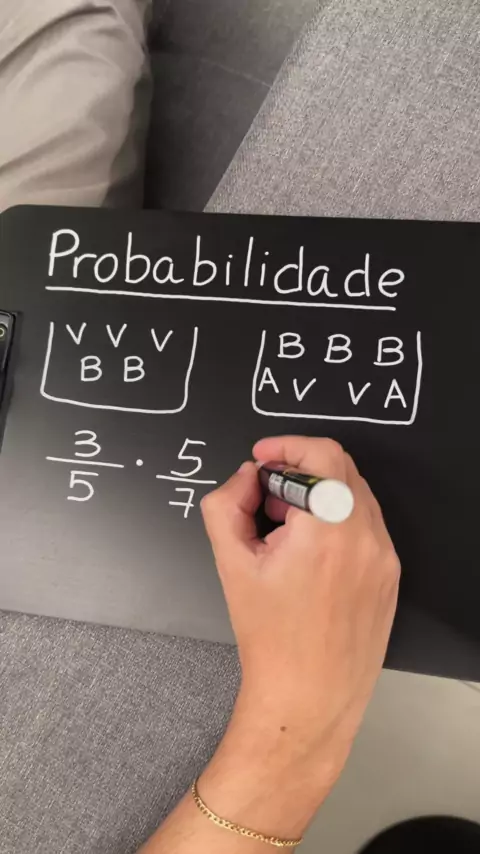 Probabilidade
V V V
B B
B B B
A V V A
3/5 · 5/7